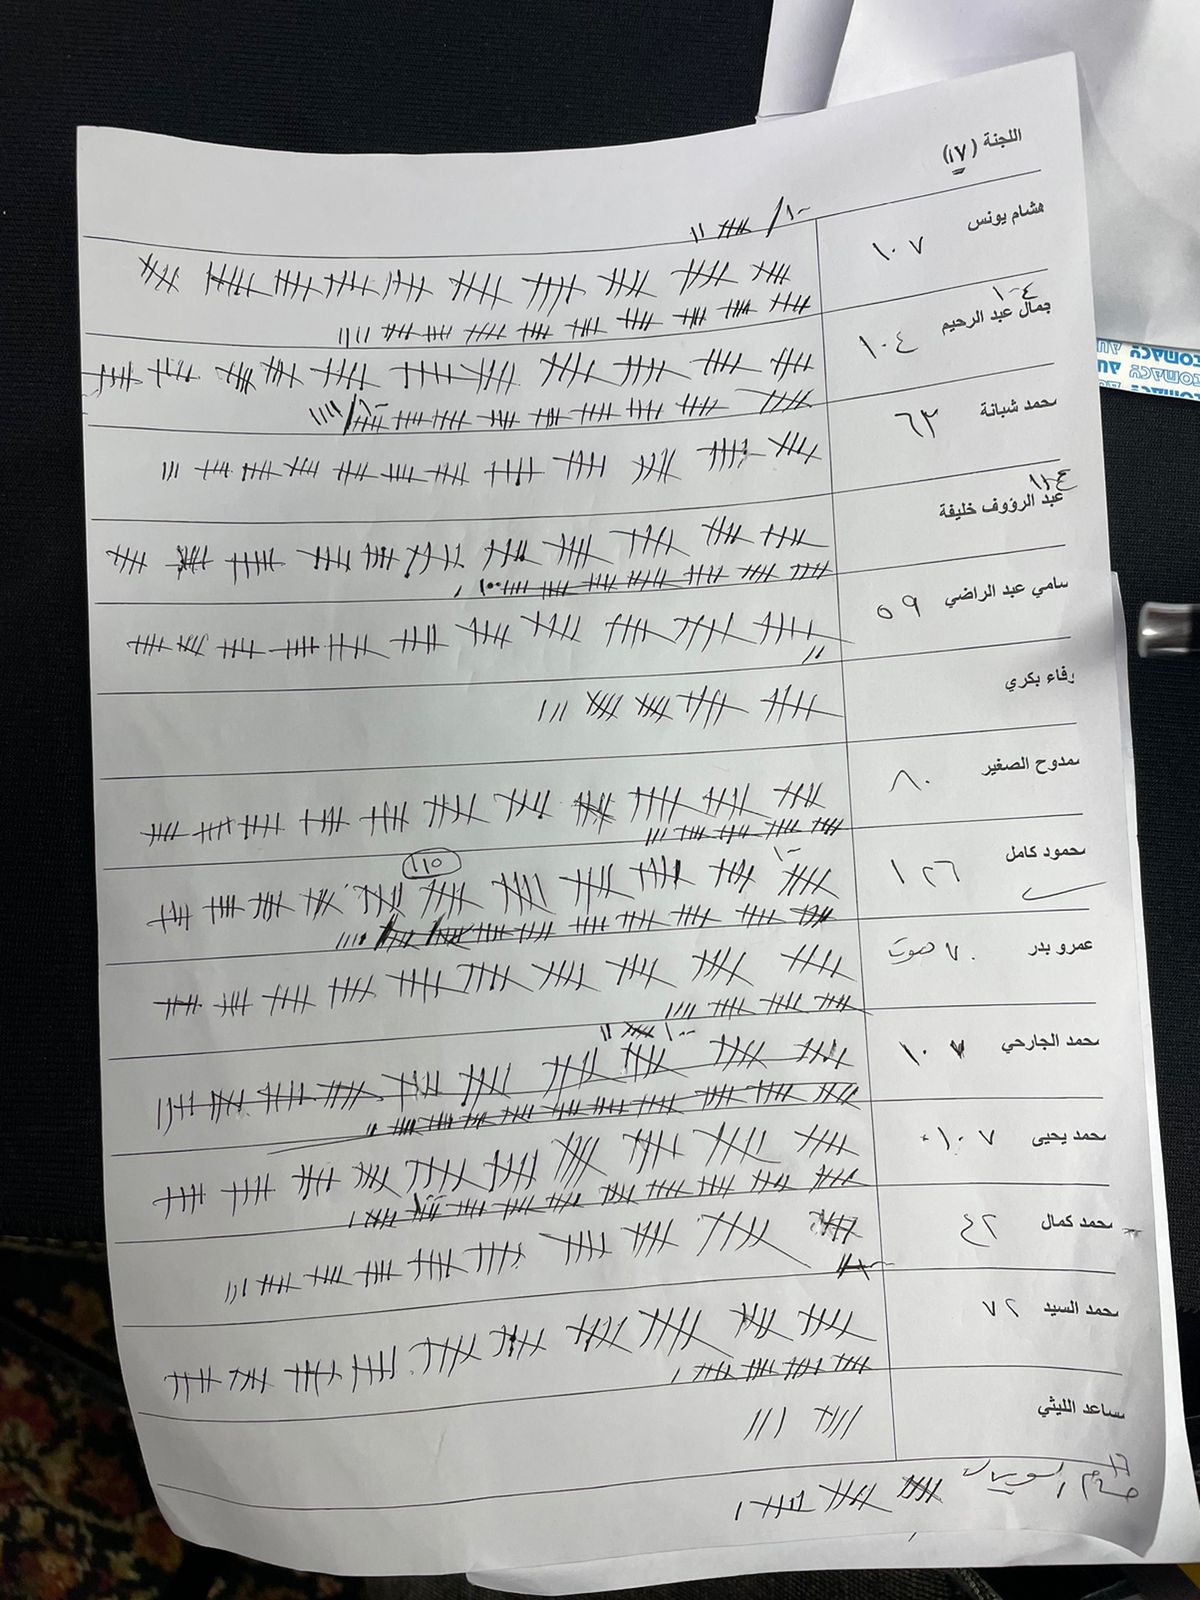 اللجنة (١٧)
١٠٠
هشام يونس ١٠٧
١٠٤
جمال عبد الرحيم ١٠٤
١٠٠
محمد شبانة ٦٣
عبد الرؤوف خليفة
١٠٠
سامي عبد الراضي ٥٩
وفاء بكري
ممدوح الصغير ٨٠
١١٥
محمود كامل ١٢٦
عمرو بدر ٧٠ صوت
١٠٠
محمد الجارحي ١٠٧
محمد يحيى ١٠٧
١٠٠
محمد كمال ٤٢
محمد السيد ٧٢
ساعد الليثي
١٦
حسام